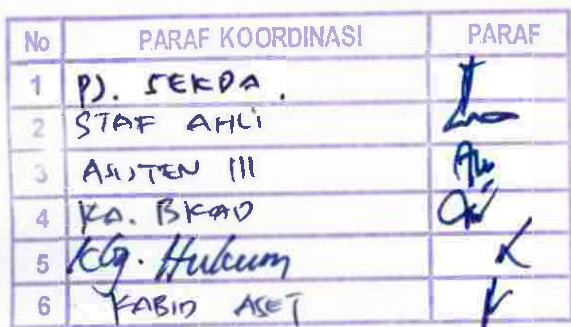 No PARAF KOORDINASI PARAF
1 PJ. SEKDA.
2 STAF AHLI
3 ASISTEN III
4 KA. BKAD
5 Kbg. Hukum
6 KABID ASET